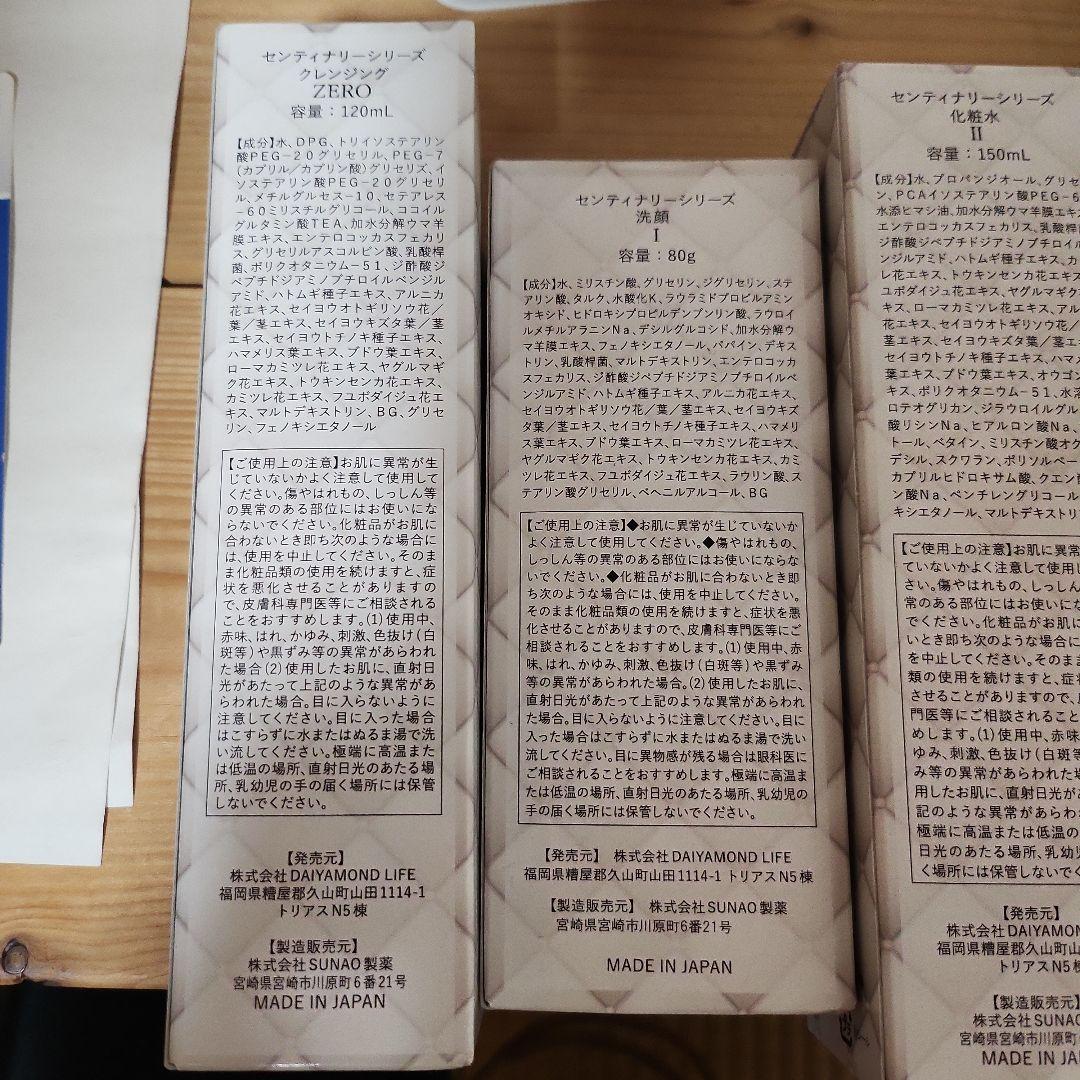 センティナリーシリーズ
クレンジング
ZERO
容量：120mL
【成分】水、DPG、トリイソステアリン
酸PEG−20グリセリル、PEG−7
(カプリル／カプリン酸)グリセリズ、イ
ソステアリン酸PEG−20グリセリ
ル、メチルグルセス−10、セテアレス
−60ミリスチルグリコール、ココイル
グルタミン酸TEA、加水分解ウマ羊
膜エキス、エンテロコッカスフェカリ
ス、グリセリルアスコルビン酸、乳酸桿
菌、ポリクオタニウム−51、ジ酢酸ジ
ペプチドジアミノブチロイルベンジル
アミド、ハトムギ種子エキス、アルニカ
花エキス、セイヨウオトギリソウ花／
葉／茎エキス、セイヨウキズタ葉／茎
エキス、セイヨウトチノキ種子エキス、
ハマメリス葉エキス、ブドウ葉エキス、
ローマカミツレ花エキス、ヤグルマギ
ク花エキス、トウキンセンカ花エキス、
カミツレ花エキス、フユボダイジュ花エ
キス、マルトデキストリン、BG、グリセ
リン、フェノキシエタノール
【ご使用上の注意】お肌に異常が生
じていないかよく注意して使用して
ください。傷やはれもの、しっしん等
の異常のある部位にはお使いにな
らないでください。化粧品がお肌に
合わないとき即ち次のような場合に
は、使用を中止してください。そのま
ま化粧品類の使用を続けますと、症
状を悪化させることがありますの
で、皮膚科専門医等にご相談される
ことをおすすめします。(1)使用中、
赤味、はれ、かゆみ、刺激、色抜け(白
斑等)や黒ずみ等の異常があらわれ
た場合(2)使用したお肌に、直射日
光があたって上記のような異常があ
らわれた場合。目に入らないように
注意してください。目に入った場合
はこすらずに水またはぬるま湯で洗
い流してください。極端に高温また
は低温の場所、直射日光のあたる場
所、乳幼児の手の届く場所には保管
しないでください。
【発売元】
株式会社DAIYAMOND LIFE
福岡県糟屋郡久山町山田1114-1
トリアスN5棟
【製造販売元】
株式会社SUNAO製薬
宮崎県宮崎市川原町6番21号
MADE IN JAPAN
センティナリーシリーズ
洗顔
I
容量：80g
【成分】水、ミリスチン酸、グリセリン、ジグリセリン、ステ
アリン酸、タルク、水酸化K、ラウラミドプロピルアミン
オキシド、ヒドロキシプロピルデンプンリン酸、ラウロイ
ルメチルアラニンNa、デシルグルコシド、加水分解ウ
マ羊膜エキス、フェノキシエタノール、パパイン、デキス
トリン、乳酸桿菌、マルトデキストリン、エンテロコッカ
スフェカリス、ジ酢酸ジペプチドジアミノブチロイルベ
ンジルアミド、ハトムギ種子エキス、アルニカ花エキス、
セイヨウオトギリソウ花／葉／茎エキス、セイヨウキズ
タ葉／茎エキス、セイヨウトチノキ種子エキス、ハマメリ
ス葉エキス、ブドウ葉エキス、ローマカミツレ花エキス、
ヤグルマギク花エキス、トウキンセンカ花エキス、カミツ
レ花エキス、フユボダイジュ花エキス、ラウリン酸、ス
テアリン酸グリセリル、ベヘニルアルコール、BG
【ご使用上の注意】◆お肌に異常が生じていないか
よく注意して使用してください。◆傷やはれもの、
しっしん等の異常のある部位にはお使いにならな
いでください。◆化粧品がお肌に合わないとき即
ち次のような場合には、使用を中止してください。
そのまま化粧品類の使用を続けますと、症状を悪
化させることがありますので、皮膚科専門医等にご
相談されることをおすすめします。(1)使用中、赤
味、はれ、かゆみ、刺激、色抜け(白斑等)や黒ずみ
等の異常があらわれた場合。(2)使用したお肌に、
直射日光があたって上記のような異常があらわれ
た場合。目に入らないように注意してください。目に
入った場合はこすらずに水またはぬるま湯で洗い
流してください。目に異物感が残る場合は眼科医に
ご相談されることをおすすめします。極端に高温ま
たは低温の場所、直射日光のあたる場所、乳幼児の
手の届く場所には保管しないでください。
【発売元】 株式会社DAIYAMOND LIFE
福岡県糟屋郡久山町山田1114-1 トリアスN5棟
【製造販売元】 株式会社SUNAO製薬
宮崎県宮崎市川原町6番21号
MADE IN JAPAN
センティナリーシリーズ
化粧水
II
容量：150mL
【成分】水、プロパンジオール、グリセ
ン、PCAイソステアリン酸PEG−6
水添ヒマシ油、加水分解ウマ羊膜エキス
エンテロコッカスフェカリス、乳酸桿
ジ酢酸ジペプチドジアミノブチロイル
ンジルアミド、ハトムギ種子エキス、カ
レ花エキス、トウキンセンカ花エキス、
ユボダイジュ花エキス、ヤグルマギク
キス、ローマカミツレ花エキス、アル
花エキス、セイヨウオトギリソウ花／
茎エキス、セイヨウキズタ葉／茎エキス
セイヨウトチノキ種子エキス、ハマ
葉エキス、ブドウ葉エキス、オウゴン
キス、ポリクオタニウム−51、水溶
ロテオグリカン、ジラウロイルグル
酸リシンNa、ヒアルロン酸Na、
トール、ベタイン、ミリスチン酸オク
デシル、スクワラン、ポリソルベー
カプリルヒドロキサム酸、クエン酸
ン酸Na、ペンチレングリコール
キシエタノール、マルトデキストリ
【ご使用上の注意】お肌に異常
ていないかよく注意して使用し
さい。傷やはれもの、しっしん
常のある部位にはお使いにな
でください。化粧品がお肌に
いとき即ち次のような場合に
を中止してください。そのまま
類の使用を続けますと、症状
させることがありますので、
門医等にご相談されること
めします。(1)使用中、赤味
ゆみ、刺激、色抜け(白斑等
み等の異常があらわれた場
用したお肌に、直射日光があ
記のような異常があらわ
極端に高温または低温の
日光のあたる場所、乳幼
く場所には保管しないで
【発売元】
株式会社DAIYAMON
福岡県糟屋郡久山町山
トリアスN5棟
【製造販売元】
株式会社SUNAO
宮崎県宮崎市川原町
MADE IN JA